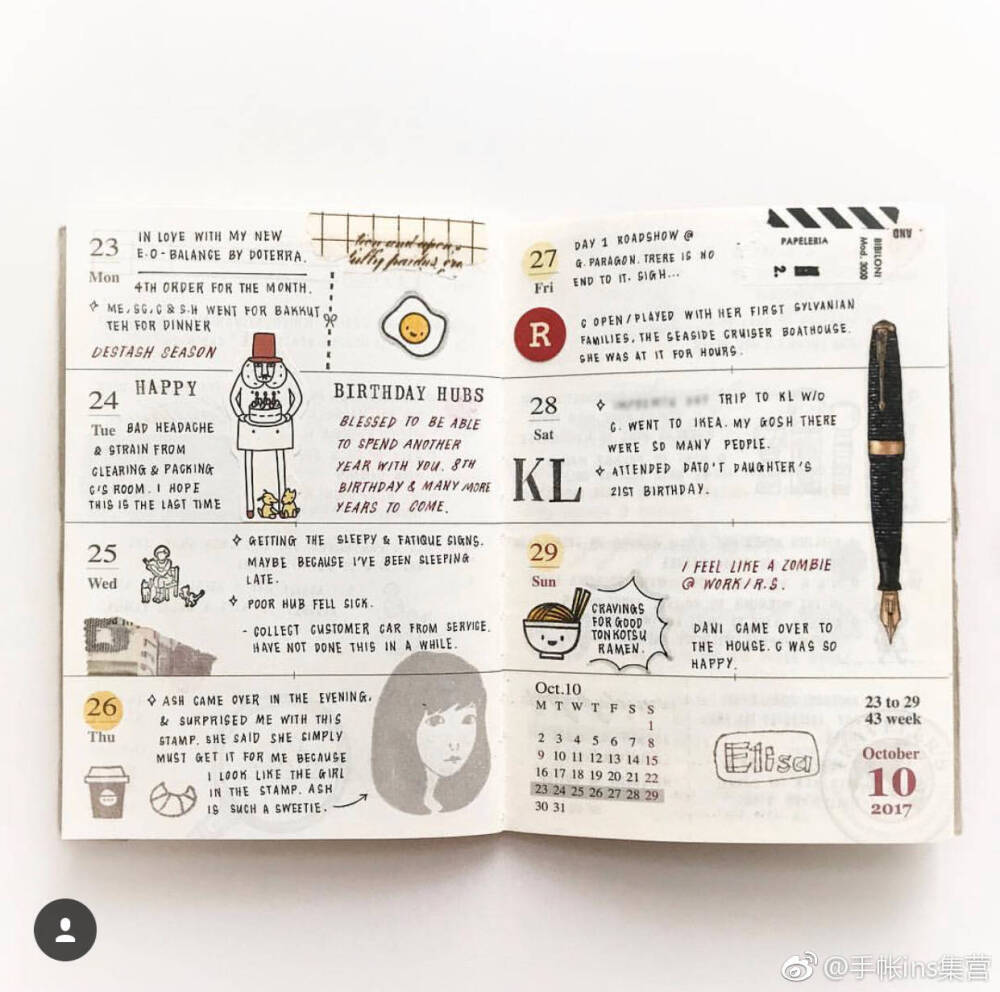 23
Mon
IN LOVE WITH MY NEW
E.O-BALANCE BY DOTERRA.
4TH ORDER FOR THE MONTH.
ME, SG, C & S.H WENT FOR BAKKUT
TEH FOR DINNER
DESTASH SEASON
24
Tue
HAPPY
BIRTHDAY HUBS
BAD HEADACHE
& STRAIN FROM
CLEARING & PACKING
C'S ROOM. I HOPE
THIS IS THE LAST TIME
BLESSED TO BE ABLE
TO SPEND ANOTHER
YEAR WITH YOU. 8TH
BIRTHDAY & MANY MORE
YEARS TO COME.
25
Wed
GETTING THE SLEEPY & FATIQUE SIGNS.
MAYBE BECAUSE I'VE BEEN SLEEPING
LATE.
POOR HUB FELL SICK.
- COLLECT CUSTOMER CAR FROM SERVICE.
HAVE NOT DONE THIS IN A WHILE.
26
Thu
ASH CAME OVER IN THE EVENING,
& SURPRISED ME WITH THIS
STAMP. SHE SAID SHE SIMPLY
MUST GET IT FOR ME BECAUSE
I LOOK LIKE THE GIRL
IN THE STAMP. ASH
IS SUCH A SWEETIE.
27
Fri
DAY 1 ROADSHOW @
G. PARAGON. THERE IS NO
END TO IT. SIGH...
PAPELERIA
2.
BIBILONI
Mod. 3000
AND
R
C OPEN/PLAYED WITH HER FIRST SYLVANIAN
FAMILIES, THE SEASIDE CRUISER BOATHOUSE.
SHE WAS AT IT FOR HOURS.
28
Sat
KL
TRIP TO KL W/O
C. WENT TO IKEA. MY GOSH THERE
WERE SO MANY PEOPLE.
ATTENDED DATO'T DAUGHTER'S
21ST BIRTHDAY.
29
Sun
CRAVINGS
FOR GOOD
TONKOTSU
RAMEN.
I FEEL LIKE A ZOMBIE
@ WORK/R.S.
DANI CAME OVER TO
THE HOUSE. C WAS SO
HAPPY.
Oct.10
M T W T F S S
1
2 3 4 5 6 7 8
9 10 11 12 13 14 15
16 17 18 19 20 21 22
23 24 25 26 27 28 29
30 31
Elisa
23 to 29
43 week
October
10
2017
@手帐ins集营